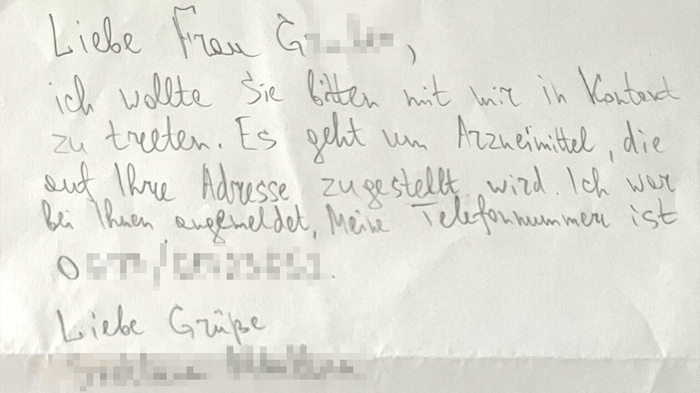 Liebe Frau G
ich wollte Sie bitten mit mir in Kontakt
zu treten. Es geht um Arzneimittel, die
auf Ihre Adresse zugestellt wird. Ich war
bei Ihnen angemeldet, Meine Telefonnummer ist
0
Liebe Grüße